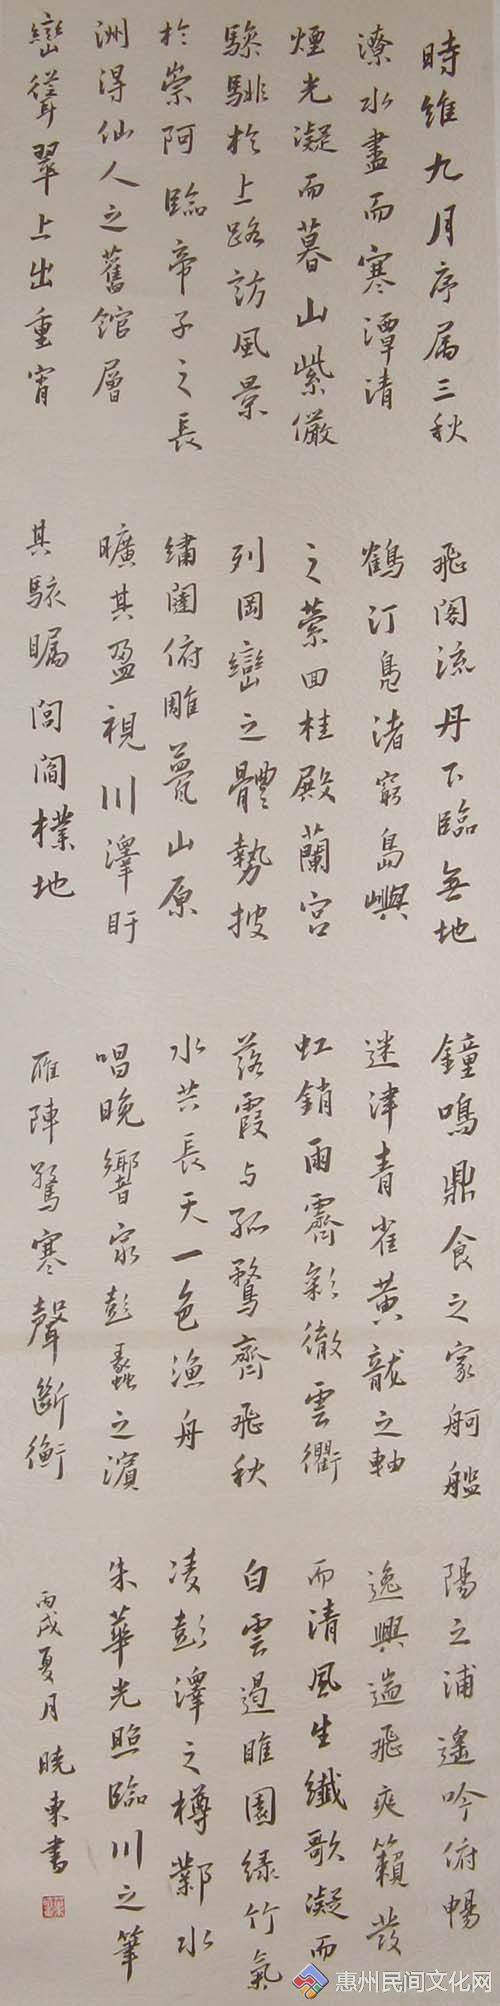 時維九月序属三秋
潦水盡而寒潭清
煙光凝而暮山紫儼
驂騑於上路訪風景
於崇阿臨帝子之長
洲得仙人之舊館層
巒聳翠上出重宵
飛閣流丹下臨無地
鶴汀鳧渚窮島嶼
之縈回桂殿蘭宮
列岡巒之體勢披
繡闥俯雕甍山原
曠其盈視川澤盱
其駭瞩閭閻樸地
鐘鳴鼎食之家舸艦
迷津青雀黄龍之軸
虹銷雨霽彩徹雲衢
落霞与孤鶩齊飛秋
水共長天一色漁舟
唱晚響窮彭蠡之濱
雁陣驚寒聲斷衡
陽之浦遙吟俯暢
逸興遄飛爽籟發
而清風生纖歌凝而
白雲遏睢園緑竹氣
凌彭澤之樽鄴水
朱華光照臨川之筆
丙戌夏月曉東書
惠州民间文化网